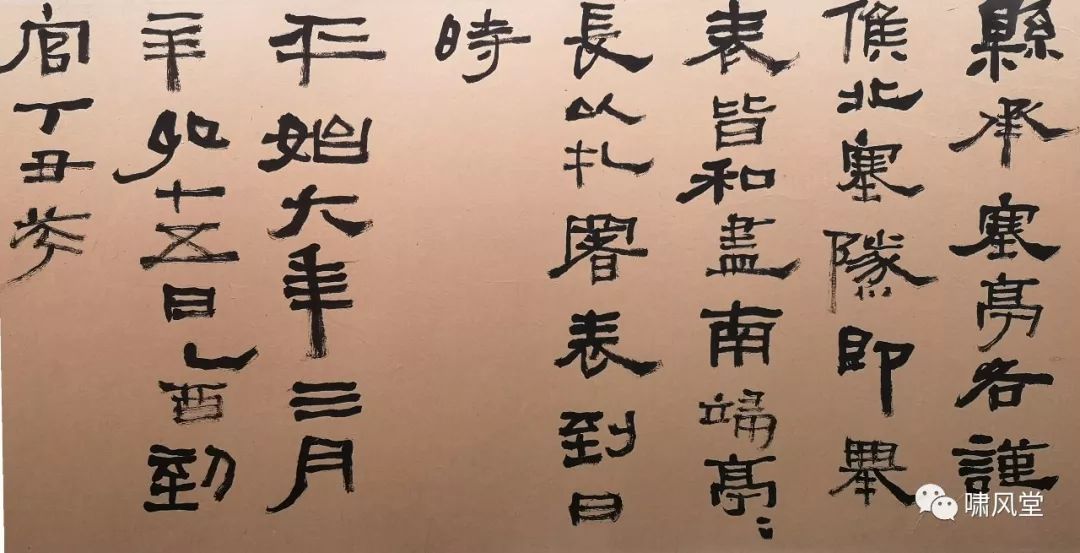 縣承塞亭各謹
候北塞隧即舉
表皆和盡南端亭〻
長以札署表到日
時
始六年三月
卯十五日乙酉到
官丁丑
啸风堂